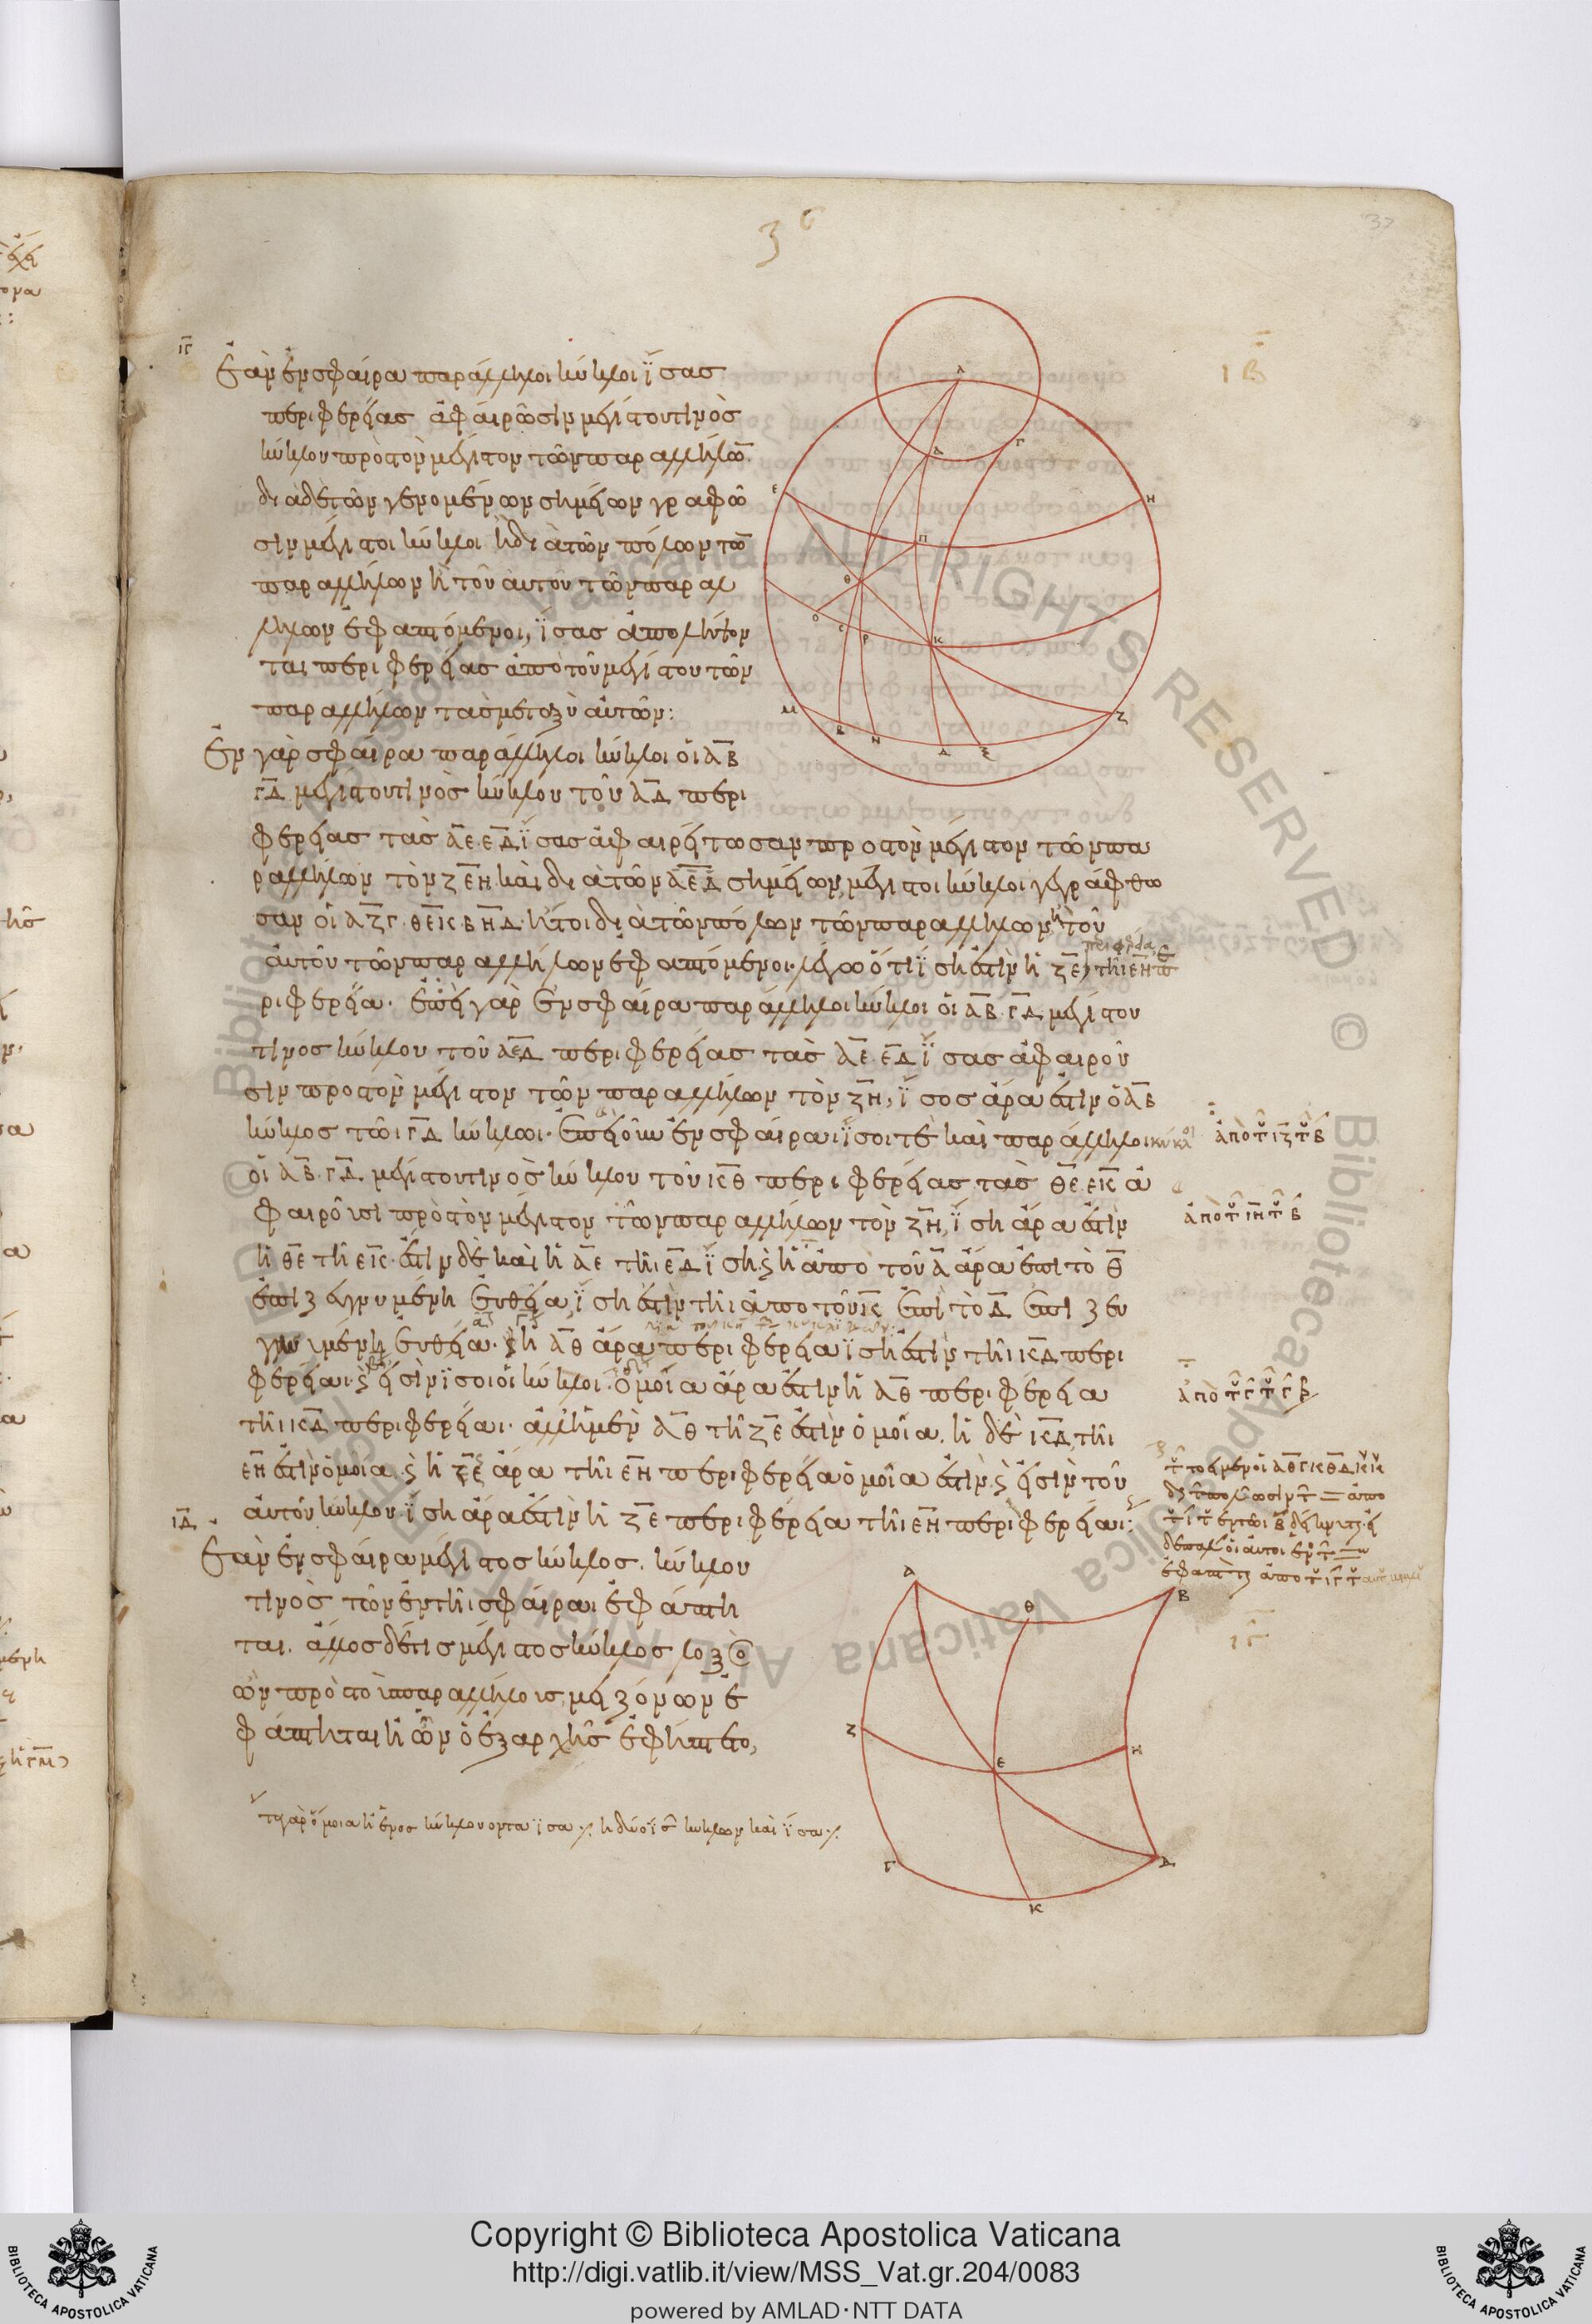 37
ιγ
Ἐὰν ἐν σφαίρα παράλληλοι κύκλοι ἴσας
περιφερείας ἀφαιρῶσιν μεγίστου τινὸς
κύκλου πρὸς τὸν μέγιστον τῶν παραλλήλω̅
διὰ δὲ τῶν γενομένων σημείων γραφῶ
σιν μέγιστοι κύκλοι ἢ διὰ τῶν πόλων τω̅
παραλλήλων ἢ τοῦ αὐτοῦ τῶν παραλ
λήλων ἐφαπτόμενοι, ἴσας ἀπολήψον
ται περιφερείας ἀπὸ τοῦ μεγίστου τῶν
παραλλήλων τὰς μεταξὺ αὐτῶν:
Ἐν γὰρ σφαίρα παράλληλοι κύκλοι οἱ ΑΒ
ΓΔ μεγίστου τινὸς κύκλου τοῦ ΑΔ περι
φερείας τὰς ΑΕ·ΕΔ ἴσας ἀφαιρείτωσαν πρὸς τὸν μέγιστον τῶν πα
ραλλήλων τὸν ΖΕΗ καὶ διὰ τῶν ΑΕΔ σημείων, μέγιστοι κύκλοι γεγράφθω
σαν οἱ ΑΖΓ·ΘΕΚ·ΒΗΔ· ἤτοι διὰ τῶν πόλων τῶν παραλλήλων ἢ τοῦ
αὐτοῦ τῶν παραλλήλων ἐφαπτόμενοι· λέγω ὅτι ἴση ἐστὶν ἡ ΖΕ τῆι ΕΗ πε
ριφερεία· ἐπεὶ γὰρ ἐν σφαίρα παράλληλοι κύκλοι οἱ ΑΒ·ΓΔ μεγίστου
τινος κύκλου τοῦ ΑΕΔ περιφερείας τὰς ΑΕ·ΕΔ ἴσας ἀφαιροῦ
σιν πρὸς τὸν μέγιστον τῶν παραλλήλων τὸν ΖΗ, ἴσος ἄρα ἐστὶν ὁ ΑΒ
κύκλος τῶι ΓΔ κύκλωι· ἐπεὶ οὖν ἐν σφαίραι ἴσοι τε καὶ παράλληλοι κύκλοι
οἱ ΑΒ·ΓΔ μεγίστου τινὸς κύκλου τοῦ ΚΘ περιφερείας τὰς ΘΕ·ΕΚ ἀ
φαιροῦσι πρὸς τὸν μέγιστον τῶν παραλλήλων τὸν ΖΗ, ἴση ἄρα ἐστὶν
ἡ ΘΕ τῆι ΕΚ· ἔστιν δὲ καὶ ἡ ΑΕ τῆι ΕΔ ἴση· ϗ ἡ ἀπὸ τοῦ Α ἄρα ἐπὶ τὸ Θ
ἐπιζευγνυμένη εὐθεῖα, ἴση ἐστὶν τῆι ἀπὸ τοῦ Κ ἐπὶ τὸ Δ ἐπιζευ
γνυμένη εὐθεία· ϗ ἡ ΑΘ ἄρα περιφέρεια ἴση ἐστὶν τῆι ΚΔ περι
φερείαι· ϗ εἰσὶν ἴσοι οἱ κύκλοι· ὁμοία ἄρα ἐστὶν ἡ ΑΘ περιφέρεια
τῆι ΚΔ περιφερείαι· ἀλλ' ἡ μὲν ΑΘ τῆι ΖΕ ἐστὶν ὁμοία. ἡ δὲ ΚΔ τῆι
ΕΗ ἐστὶν ὁμοία· ϗ ἡ ΖΕ ἄρα τῆι ΕΗ περιφερεία ὁμοία ἐστὶν· ϗ εἰσὶν τοῦ
αὐτοῦ κύκλου· ἴση ἄρα ἐστὶν ἡ ΖΕ περιφέρεια τῆι ΕΗ περιφερείαι:
ιδ
Ἐὰν ἐν σφαίρα μέγιστος κύκλος, κύκλου
τινὸς τῶν ἐν τῆι σφαίραι ἐφάπτη
ται. ἄλλος δέ τις μέγιστος κύκλος λοξὸς
ὢν πρὸς τοὺς παραλλήλους, μειζόνων ἐ
φάπτηται ἢ ὧν ὁ ἐξ αρχῆς ἐφήπτετο,
ιβ
Α
Δ
Γ
Ε
Η
Π
Θ
Ο
Ϲ
Ρ
Κ
Μ
Β
Ν
Δ
Ξ
Ζ
ιγ
Α
Θ
Β
Ζ
Ε
Η
Γ
Κ
Δ
Copyright © Biblioteca Apostolica Vaticana
http://digi.vatlib.it/view/MSS_Vat.gr.204/0083
powered by AMLAD·NTT DATA
BIBLIOTECA APOSTOLICA VATICANA
BIBLIOTECA APOSTOLICA VATICANA